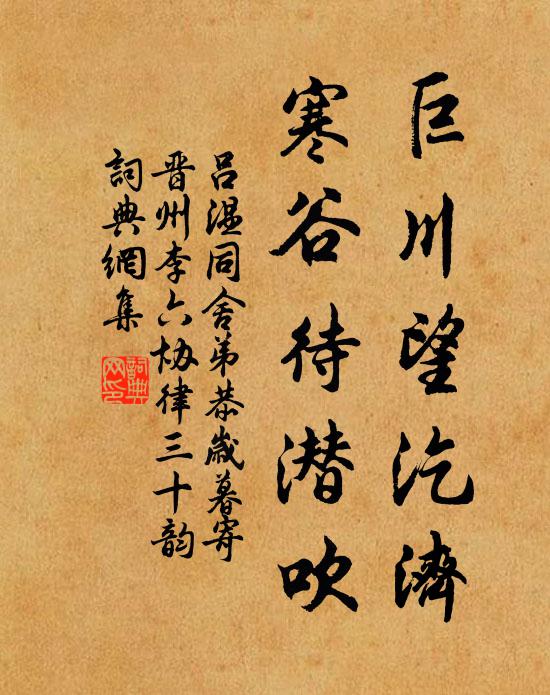 巨川望汔濟
寒谷待潜吹
吕温同舍弟恭歲暮寄
晋州李六协律三十韵
詞典網集
詞典
网印